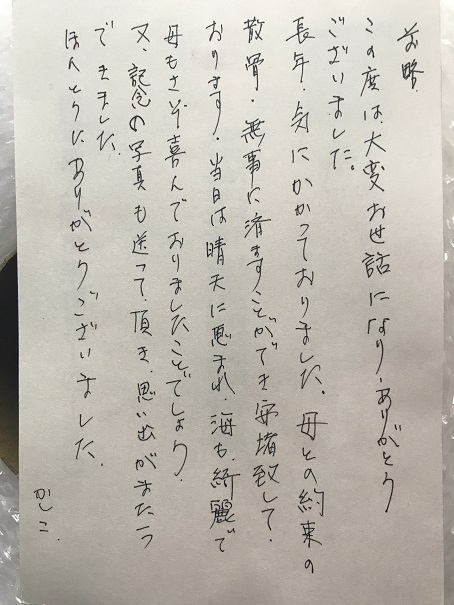 前略、
この度は、大変お世話になり、ありがとう
ございました。
長年、気にかかっておりました。母との約束の
散骨、無事に済ますことができ安堵致して、
おります。当日は晴天に恵まれ、海も、綺麗で
母もさぞ喜んでおりましたことでしょう。
又、記念の写真も送って、頂き、思い出がまた一つ
できました。
ほんとうにありがとうございました。
かしこ.